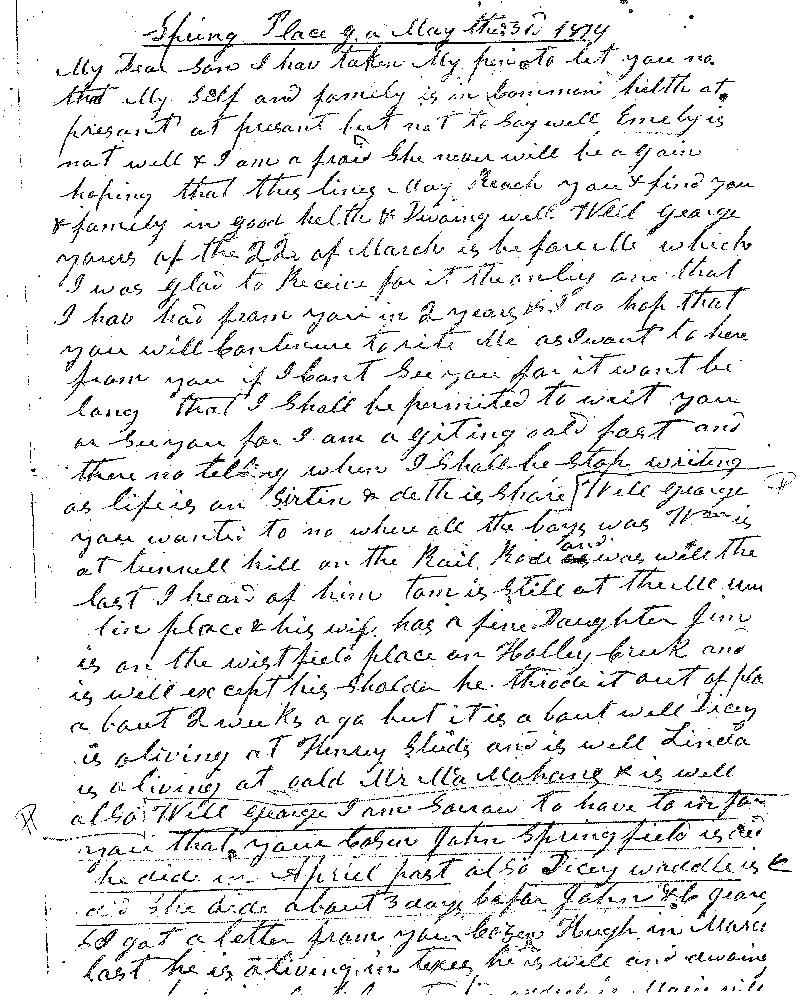 Spring Place ga May the 3d 1874
My Dear Son I hav taken My pen to let you no
that My Self and family is in Common helth at
presant at presant but not to Say well Emely is
not well & I am a fraid She never will be a gain
hoping that this lines May Reach you & find you
& family in good helth & Dwoing well Well George
yours of the 22 of March is be fore Me which
I was glad to Receive for it the onley one that
I hav had from you in 2 years & I do hop that
you will Continure to rite Me as I want to here
from you if I Cant See you for it wont be
long that I Shall be permited to writ you
or See you for I am a giting oald fast and
there no telling when I Shall be Stop writing
as life is on Sirtin & deth is Shore Well George
you wanted to no where all the boys was is
at tunnell hill on the Rail Rode and was well the
last I heard of him tom is Still at the
lin place & his wif has a fine Daughter Jim
is on the wistfield place on Holley Creek and
is well except his Sholder he throde it out of pla
a bout 2 weeks a go but it is a bout well Dicey
is a living at Henrey and is well Linda
is a living at oald Mr Ma Mahans & is well
also Well George I am Sorrow to have to infor
you that your Cosen John Springfield is
he did in Apriel past also Dicey waddle is
did She dide about 3 days befor John &
I got a letter from your Cozen Hugh in Marc
last he is a living in texes he is well and dwoing